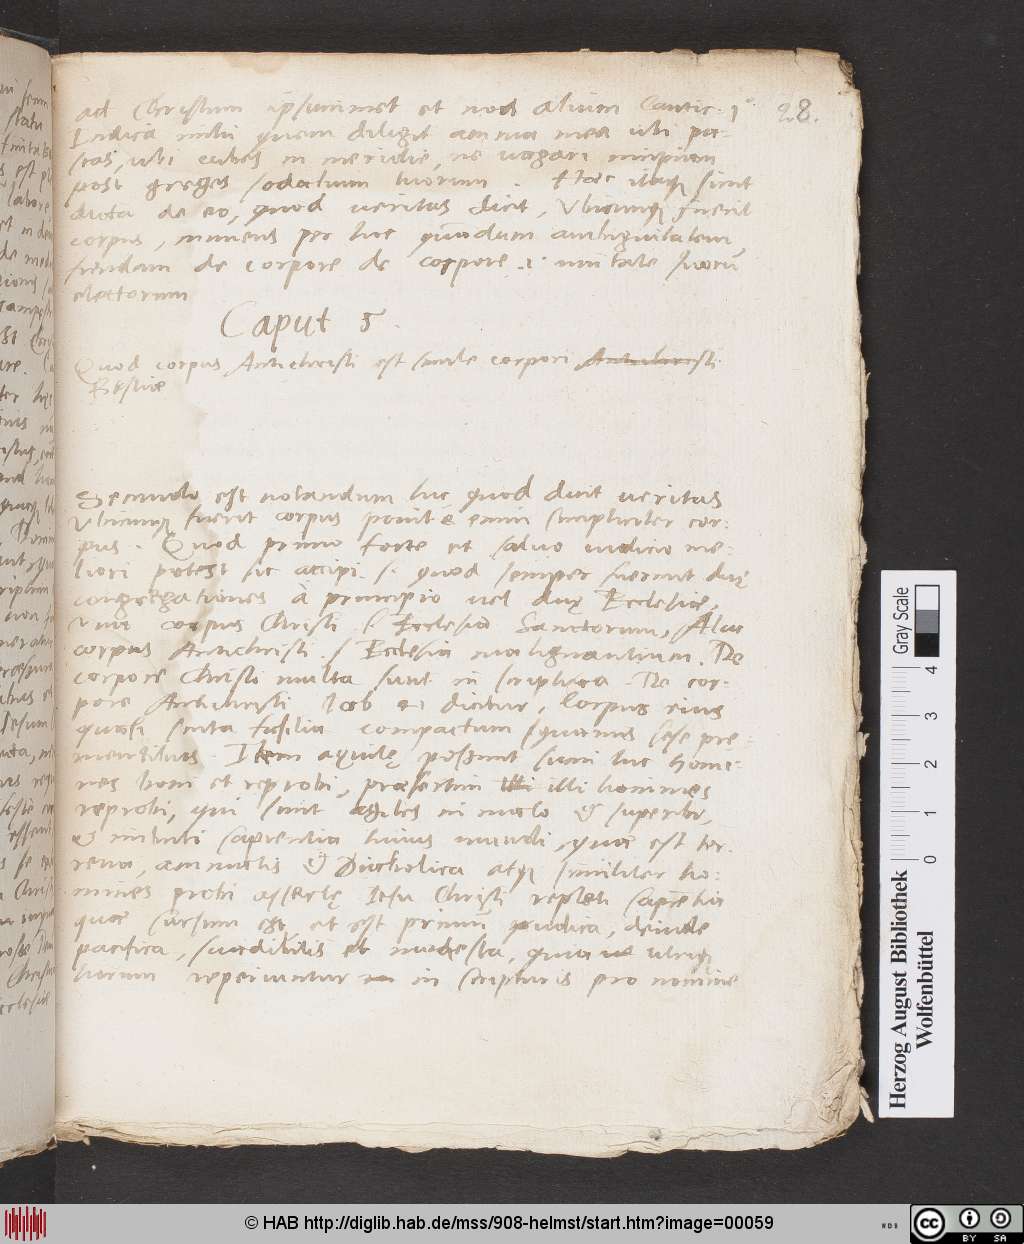 28.
ad Christum ipsummet et non alium Cantic. 1°
Indica mihi quem diligit anima mea ubi pa-
scas, ubi cubes in meridie, ne vagari incipiam
post greges sodalium tuorum. Haec itaque sint
dicta de eo, quod veritas dicit, Ubicunque fuerit
corpus, innuens per hoc quodam
de corpore de corpore .i. unitate suorum
electorum
Caput 5.
Quod corpus Antichristi est simile corpori
Bestiae
Secundo est notandum hic quod dicit veritas
Ubicunque fuerit corpus ponit enim simpliciter cor-
pus. Quod primo forte et salvo iudicio me-
liori potest sic accipi .s. quod semper fuerunt duę
congregationes à principio vel duę Ecclesiae,
Una corpus Christi .s. Ecclesia Sanctorum, Alia
corpus Antichristi .s. Ecclesia malignantium. De
corpore Christi multa sunt in scriptura. De cor-
pore Antichristi Iob 41 dicitur, Corpus eius
quasi scuta fusilia compactum squamis sese pre-
mentibus. Item aquilę possunt sumi hic homi-
nes boni et reprobi, praesertim illi homines
reprobi, qui sunt agiles in malo & superbi,
& imbuti sapientia huius mundi, quae est ter-
rena, animalis & Diabolica atque similiter ho-
mines probi Iesu Christi repleti sapientia
quae sursum est, et est primum pudica, deinde
pacifica, suadibilis et modesta, utrique
horum reperiuntur in scripturis pro nomine
Gray Scale
0 1 2 3 4
Herzog August Bibliothek
Wolfenbüttel
© HAB http://diglib.hab.de/mss/908-helmst/start.htm?image=00059
WDB
cc BY SA